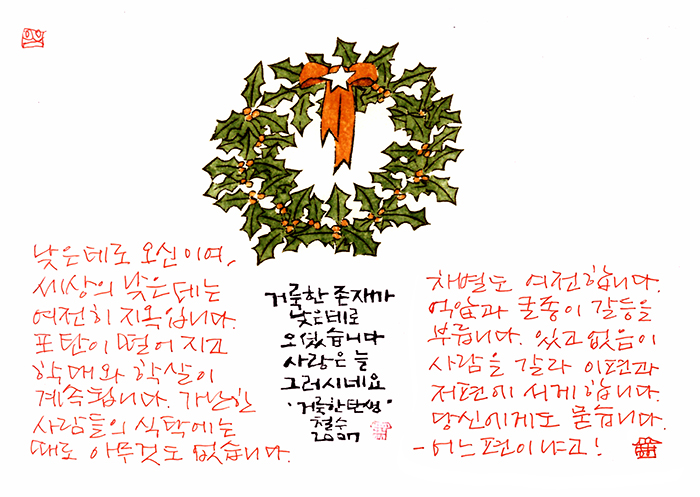 낮은데로 오신이여,
세상의 낮은 데는
여전히 지옥입니다.
포탄이 떨어 지고
학대와 학살이
계속됩니다. 가난한
사람들의 식탁에는
때로 아무것도 없습니다.
거룩한 존재가
낮은데로
오셨습니다
사랑은 늘
그러시네요
"거룩한탄생"
철수
2007
차별도 여전합니다.
억압과 굴종이 갈등을
부릅니다. 있고 없음이
사람을 갈라 이편과
저편에 서게합니다.
당신에게도 묻습니다.
-어느편이냐고!